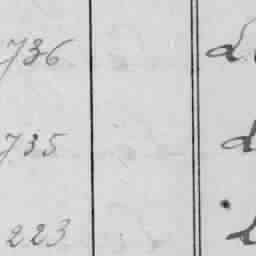 736
735 d
223